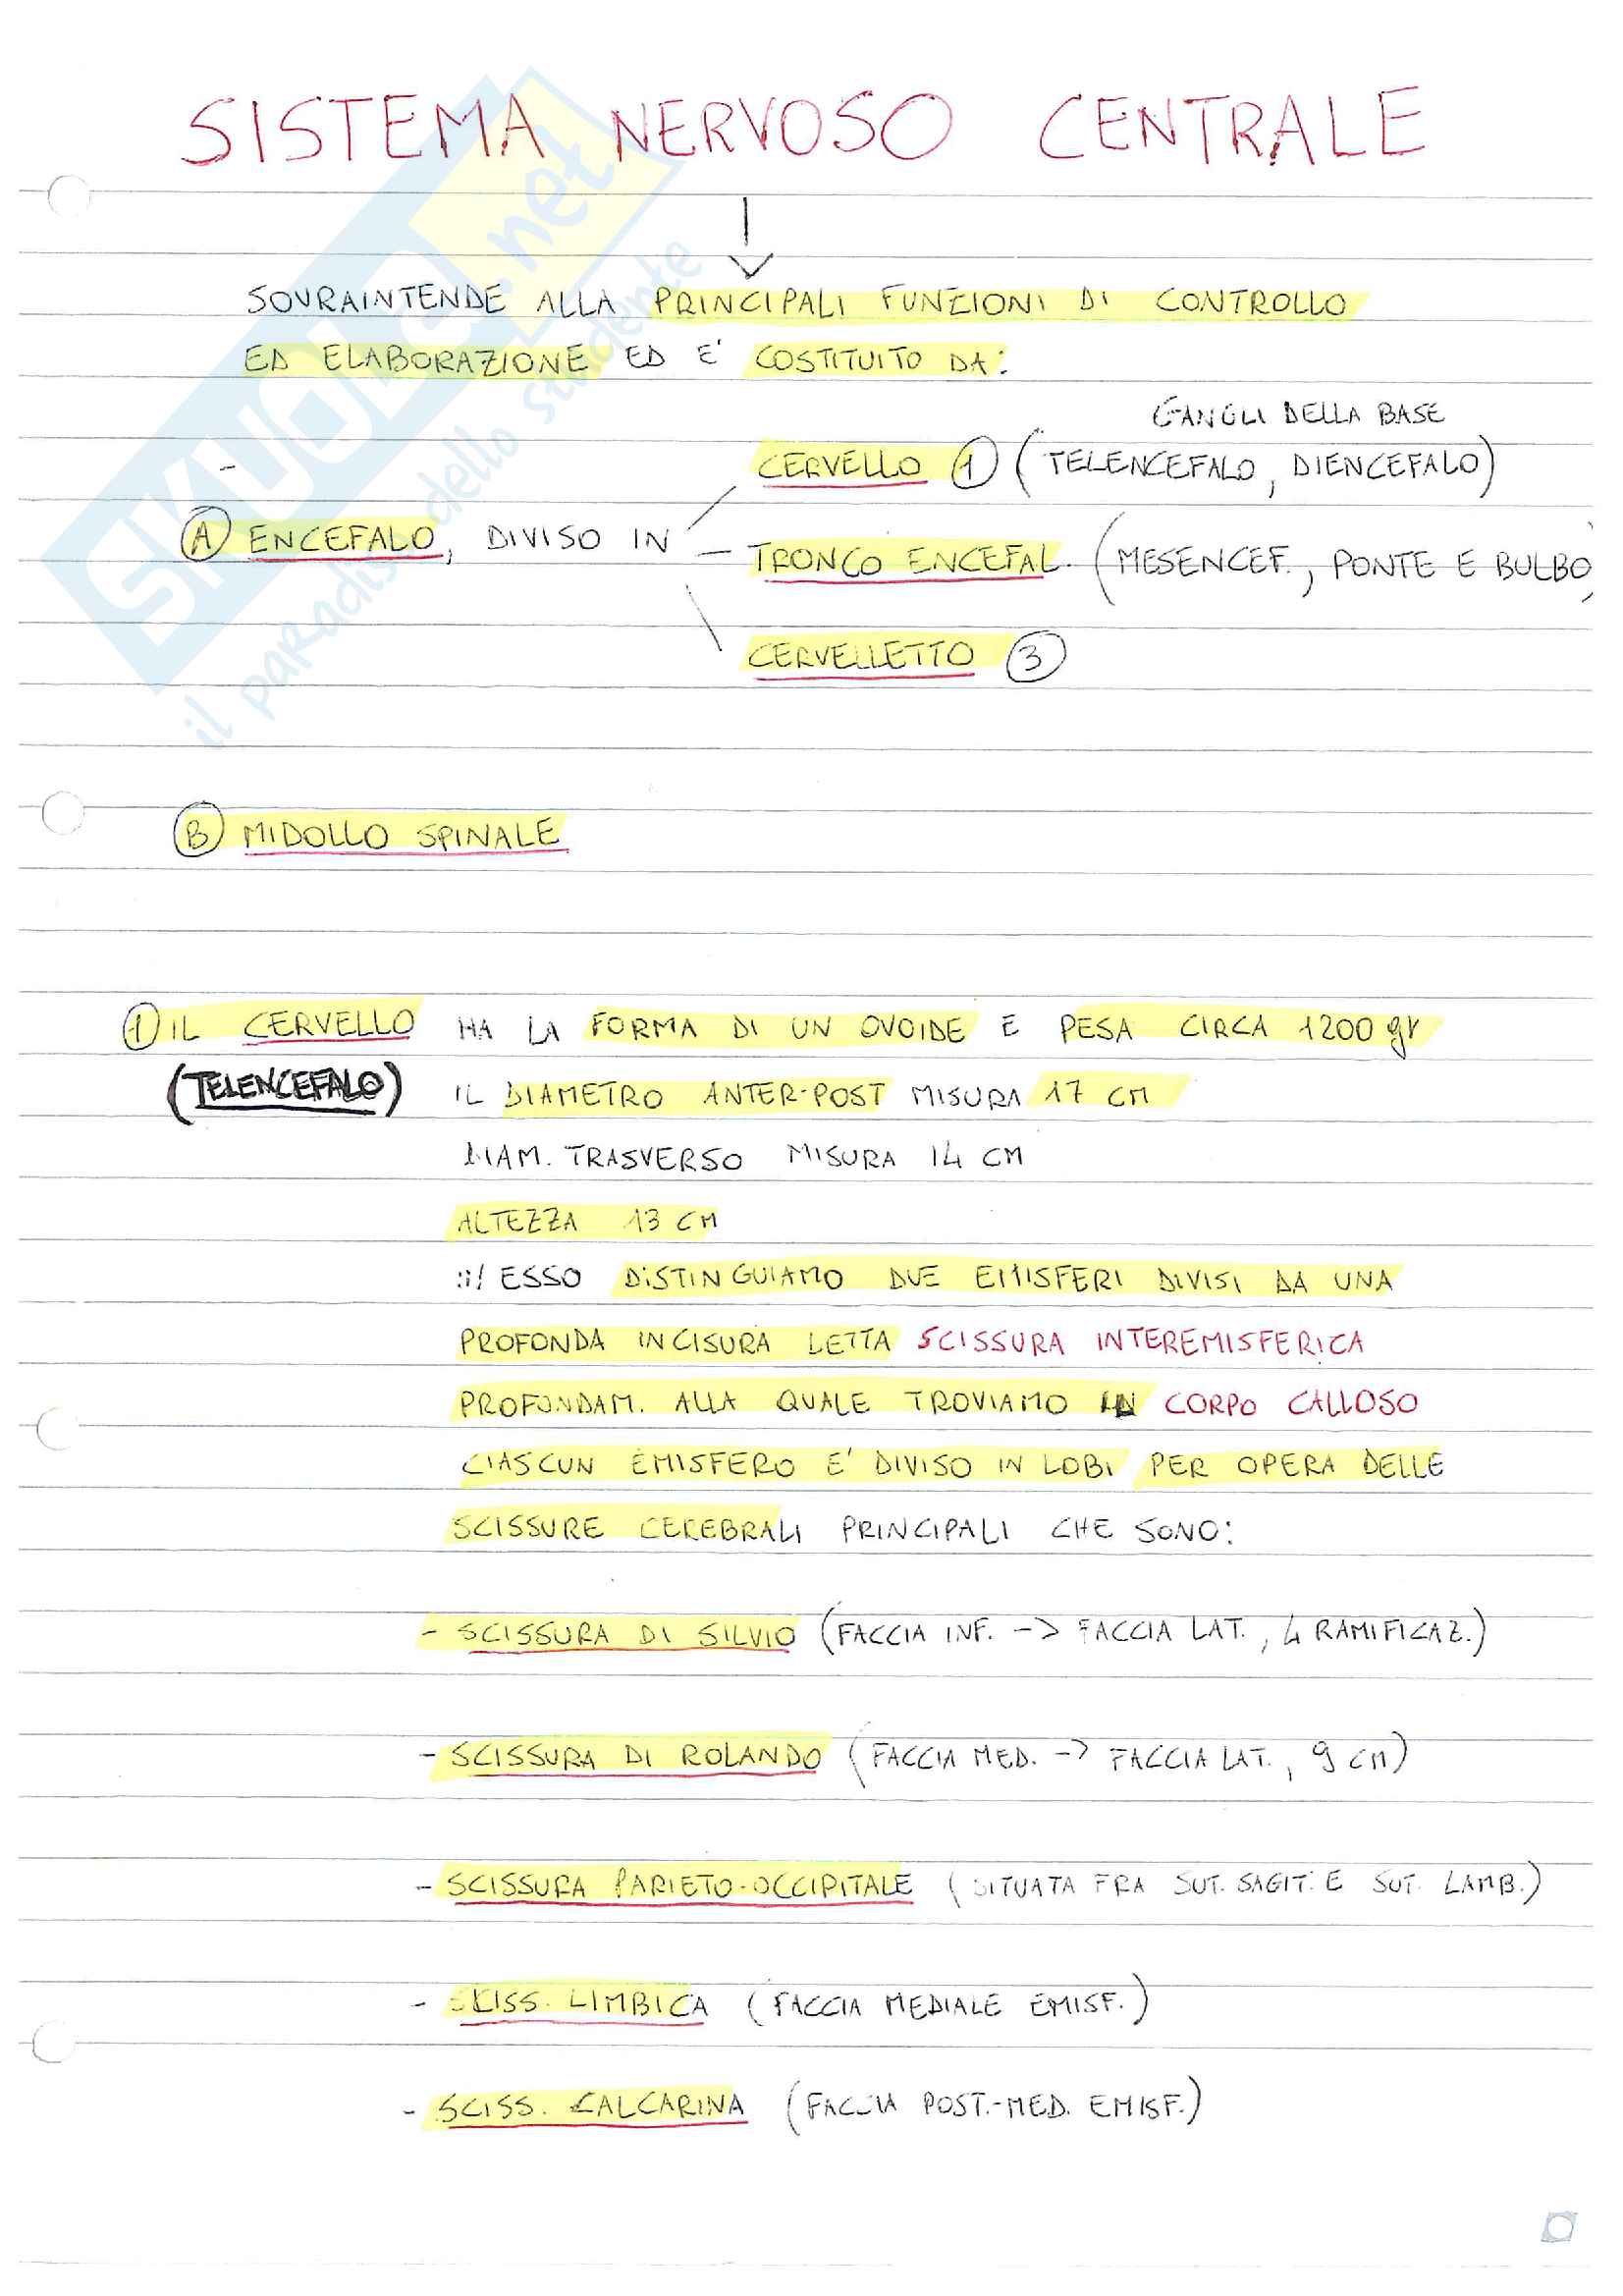 SISTEMA NERVOSO CENTRALE
SOVRAINTENDE ALLA PRINCIPALI FUNZIONI DI CONTROLLO
ED ELABORAZIONE ED E' COSTITUITO DA:
GANGLI DELLA BASE
CERVELLO 1 (TELENCEFALO, DIENCEFALO)
A ENCEFALO, DIVISO IN
- TRONCO ENCEFAL. (MESENCEF., PONTE E BULBO)
CERVELLETTO 3
B MIDOLLO SPINALE
1 IL CERVELLO HA LA FORMA DI UN OVOIDE E PESA CIRCA 1200 gr
(TELENCEFALO) IL DIAMETRO ANTER-POST MISURA 17 CM
DIAM. TRASVERSO MISURA 14 CM
ALTEZZA 13 CM
IN ESSO DISTINGUIAMO DUE EMISFERI DIVISI DA UNA
PROFONDA INCISURA DETTA SCISSURA INTEREMISFERICA
PROFONDAM. ALLA QUALE TROVIAMO CORPO CALLOSO
CIASCUN EMISFERO E' DIVISO IN LOBI PER OPERA DELLE
SCISSURE CEREBRALI PRINCIPALI CHE SONO:
- SCISSURA DI SILVIO (FACCIA INF. -> FACCIA LAT., 4 RAMIFICAZ.)
- SCISSURA DI ROLANDO (FACCIA MED. -> FACCIA LAT., 9 CM)
- SCISSURA PARIETO-OCCIPITALE (SITUATA FRA SUT. SAGIT. E SUT. LAMB.)
- SCISS. LIMBICA (FACCIA MEDIALE EMISF.)
- SCISS. CALCARINA (FACCIA POST.-MED. EMISF.)
SKUOLA.net
il paradiso dello studente